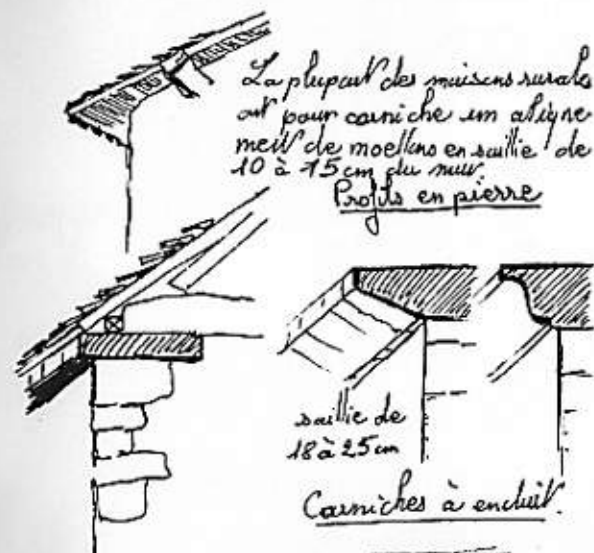 La plupart des maisons rurales
ont pour corniche un aligne
ment de moellons en saillie de
10 à 15 cm du mur.
Profils en pierre
saillie de
18 à 25 cm
Corniches à enduit.